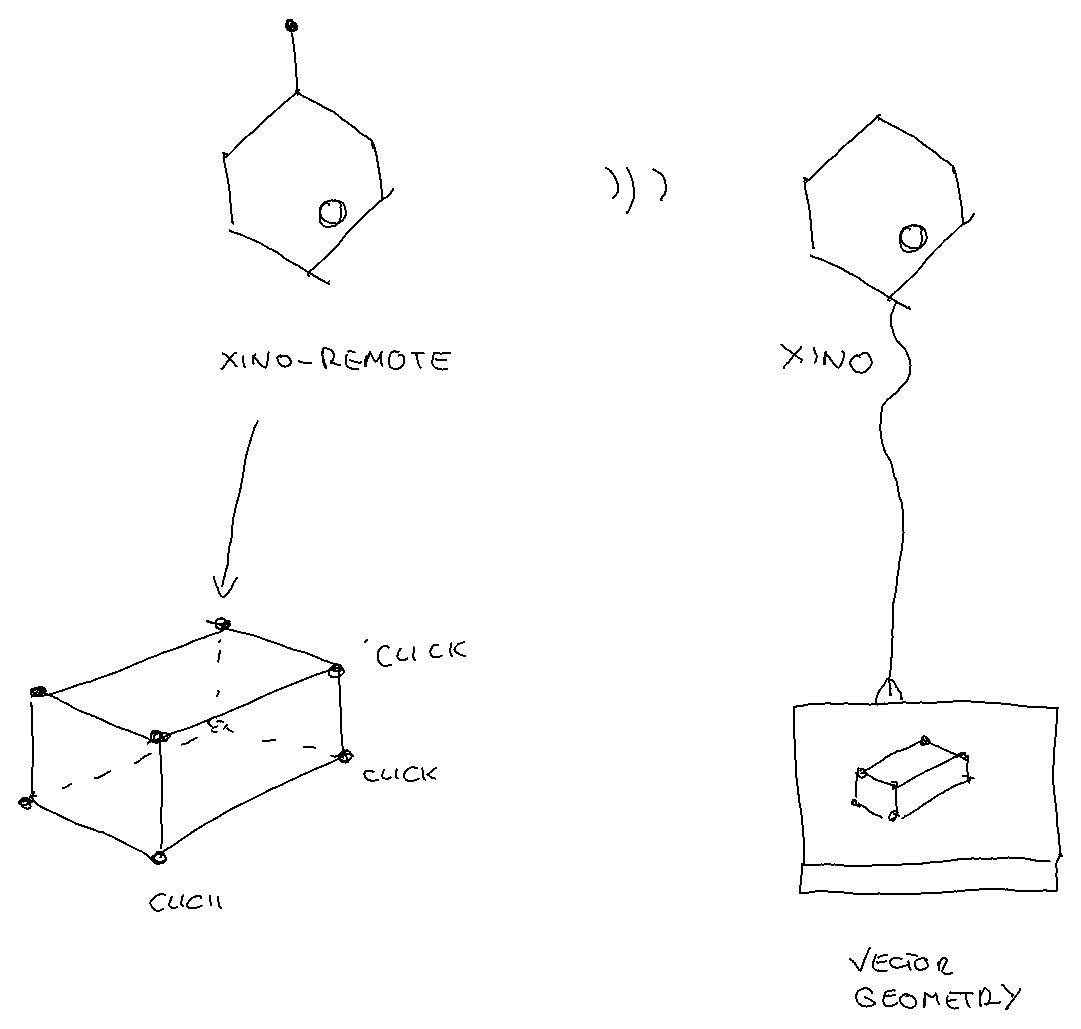 XINO-REMOTE
XINO
CLICK
CLICK
CLICK
VECTOR
GEOMETRY